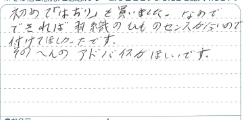 初めて「はおり」を買いました。なので
できれば羽織のひものセンスがないので
付けてほしかったです。
その人のアドバイスがほしいです。